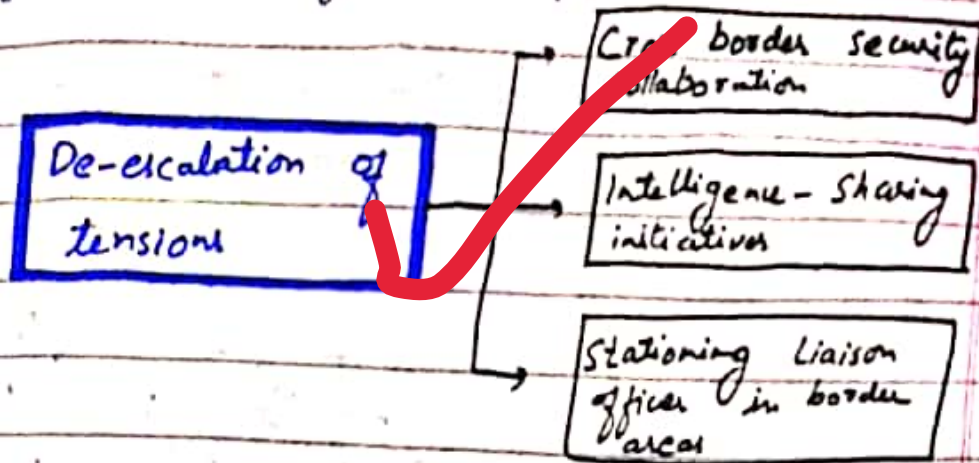 De-escalation of
tensions
Cross border security
collaboration
Intelligence - Sharing
initiatives
Stationing Liaison
offices in border
areas